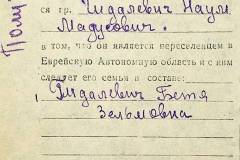 Пому
ся гр. Гидалевич Наум
Мадусович.
в том, что он является переселенцем в
Еврейскую Автономную область и с ним
следует его семья в составе:
Гидалевич Бетя
Зельмовна